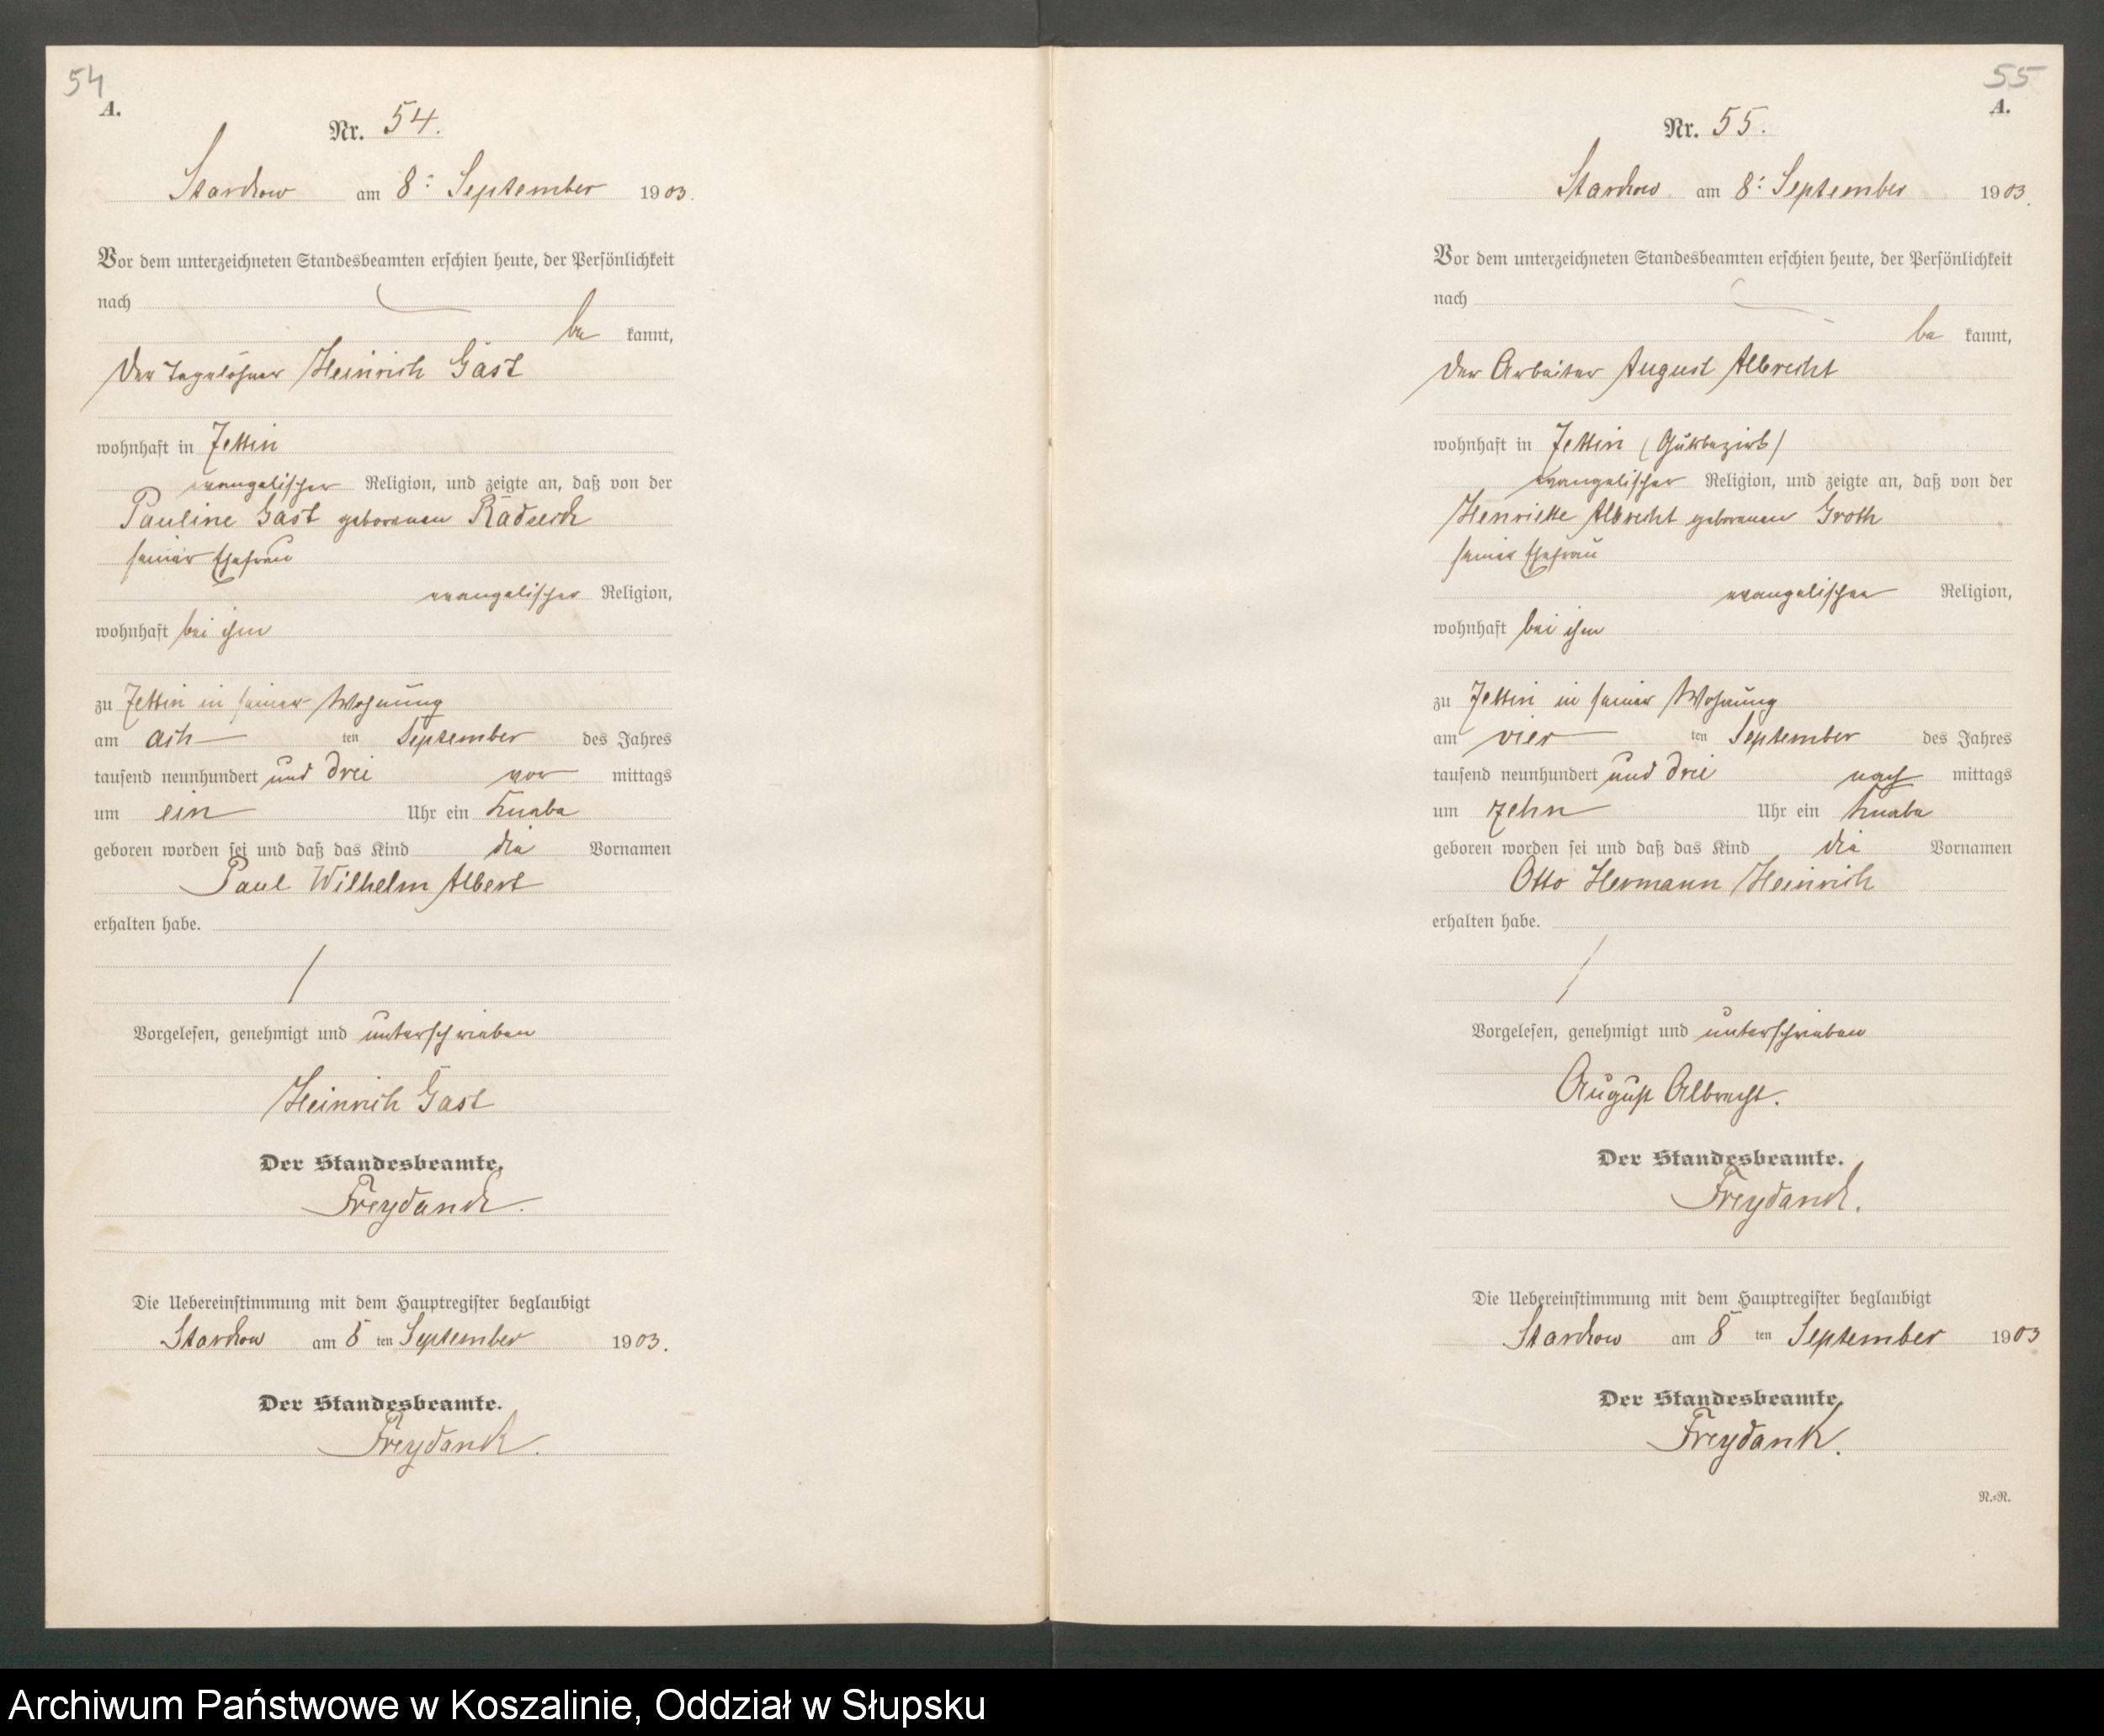 54
A.
Nr. 54.
Starckow am 8. September 1903.
Vor dem unterzeichneten Standesbeamten erschien heute, der Persönlichkeit
nach
be kannt,
der Tagelöhner Heinrich Gast
wohnhaft in Zettin
evangelischer Religion, und zeigte an, daß von der
Pauline Gast geborenen
seiner Ehefrau
evangelischer Religion,
wohnhaft bei ihm
zu Zettin in seiner Wohnung
am ach ten September des Jahres
tausend neunhundert und drei vor mittags
um ein Uhr ein Knabe
geboren worden sei und daß das Kind die Vornamen
Paul Wilhelm Albert
erhalten habe.
Vorgelesen, genehmigt und unterschrieben
Heinrich Gast
Der Standesbeamte.
Freydanck.
Die Uebereinstimmung mit dem Hauptregister beglaubigt
Starckow am 8 ten September 1903.
Der Standesbeamte.
Freydank.
55
A.
Nr. 55.
Starckow am 8. September 1903.
Vor dem unterzeichneten Standesbeamten erschien heute, der Persönlichkeit
nach
be kannt,
der Arbeiter August Albrecht
wohnhaft in Zettin (Gutsbezirk)
evangelischer Religion, und zeigte an, daß von der
Henriette Albrecht geborenen Groth
seiner Ehefrau
evangelischer Religion,
wohnhaft bei ihm
zu Zettin in seiner Wohnung
am vier ten September des Jahres
tausend neunhundert und drei nach mittags
um zehn Uhr ein Knabe
geboren worden sei und daß das Kind die Vornamen
Otto Hermann Heinrich
erhalten habe.
Vorgelesen, genehmigt und unterschrieben
August Albrecht.
Der Standesbeamte.
Freydanck.
Die Uebereinstimmung mit dem Hauptregister beglaubigt
Starckow am 8 ten September 1903
Der Standesbeamte.
Freydank.
N.=N.
Archiwum Państwowe w Koszalinie, Oddział w Słupsku